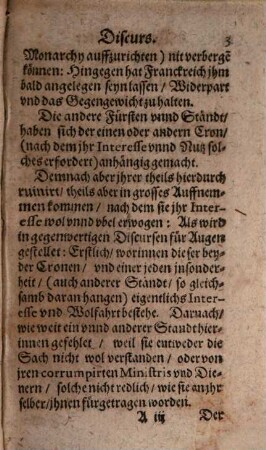 Discurs. 3
Monarchy auffzurichten) nit verbergẽ
können: Hingegen hat Franckreich jhm
bald angelegen seyn lassen / Widerpart
vnd das Gegengewicht zu halten.
Die andere Fürsten vnnd Ständt /
haben sich der einen oder andern Cron /
(nach dem jhr Interesse vnnd Nutz sol-
ches erfordert) anhängig gemacht.
Demnach aber jhrer theils hierdurch
ruinirt / theils aber in grosses Auffnem-
men kommen / nach dem sie jhr Inter-
esse wol vnnd vbel erwogen: Als wird
in gegenwertigen Discursen für Augen
gestellet: Erstlich / worinnen dieser bey-
der Cronen / vnd einer jeden insonder-
heit / (auch anderer Ständt / so gleich-
samb daran hangen) eigentlichs Inter-
esse vnd Wolfahrt bestehe. Darnach /
wie weit ein vnnd anderer Standt hier-
innen gefehlet / weil sie entweder die
Sach nicht wol verstanden / oder von
jren corrumpirten Ministris vnd Die-
nern / solche nicht redlich / wie sie an jhr
selber / jhnen fürgetragen worden.
A iij Der